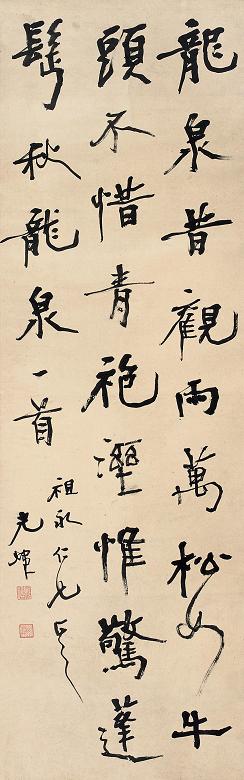 龍泉昔觀雨萬松如牛
頭不惜青袍溼惟驚蓬
鬢秋龍泉一首
祖永仁兄正之
光煒